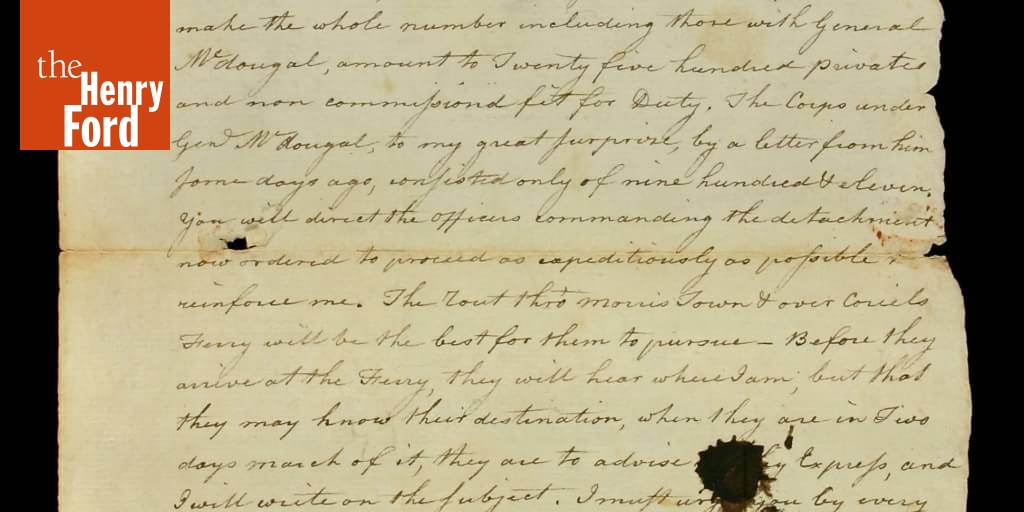 the
Henry
Ford
make the whole number including those with General
McDougal, amount to Twenty five hundred privates
and non commissiond fit for Duty. The Corps under
Genl McDougal, to my great surprize, by a letter from him
some days ago, consisted only of nine hundred & eleven.
You will direct the officers commanding the detachment
now ordered to proceed as expeditiously as possible
reinforce me. The Rout thro Morris Town & over Coriels
Ferry will be the best for them to pursue — Before they
arrive at the Ferry, they will hear where I am; but that
they may know their destination, when they are in Two
days march of it, they are to advise by Express, and
I will write on the subject. I must urge you by every